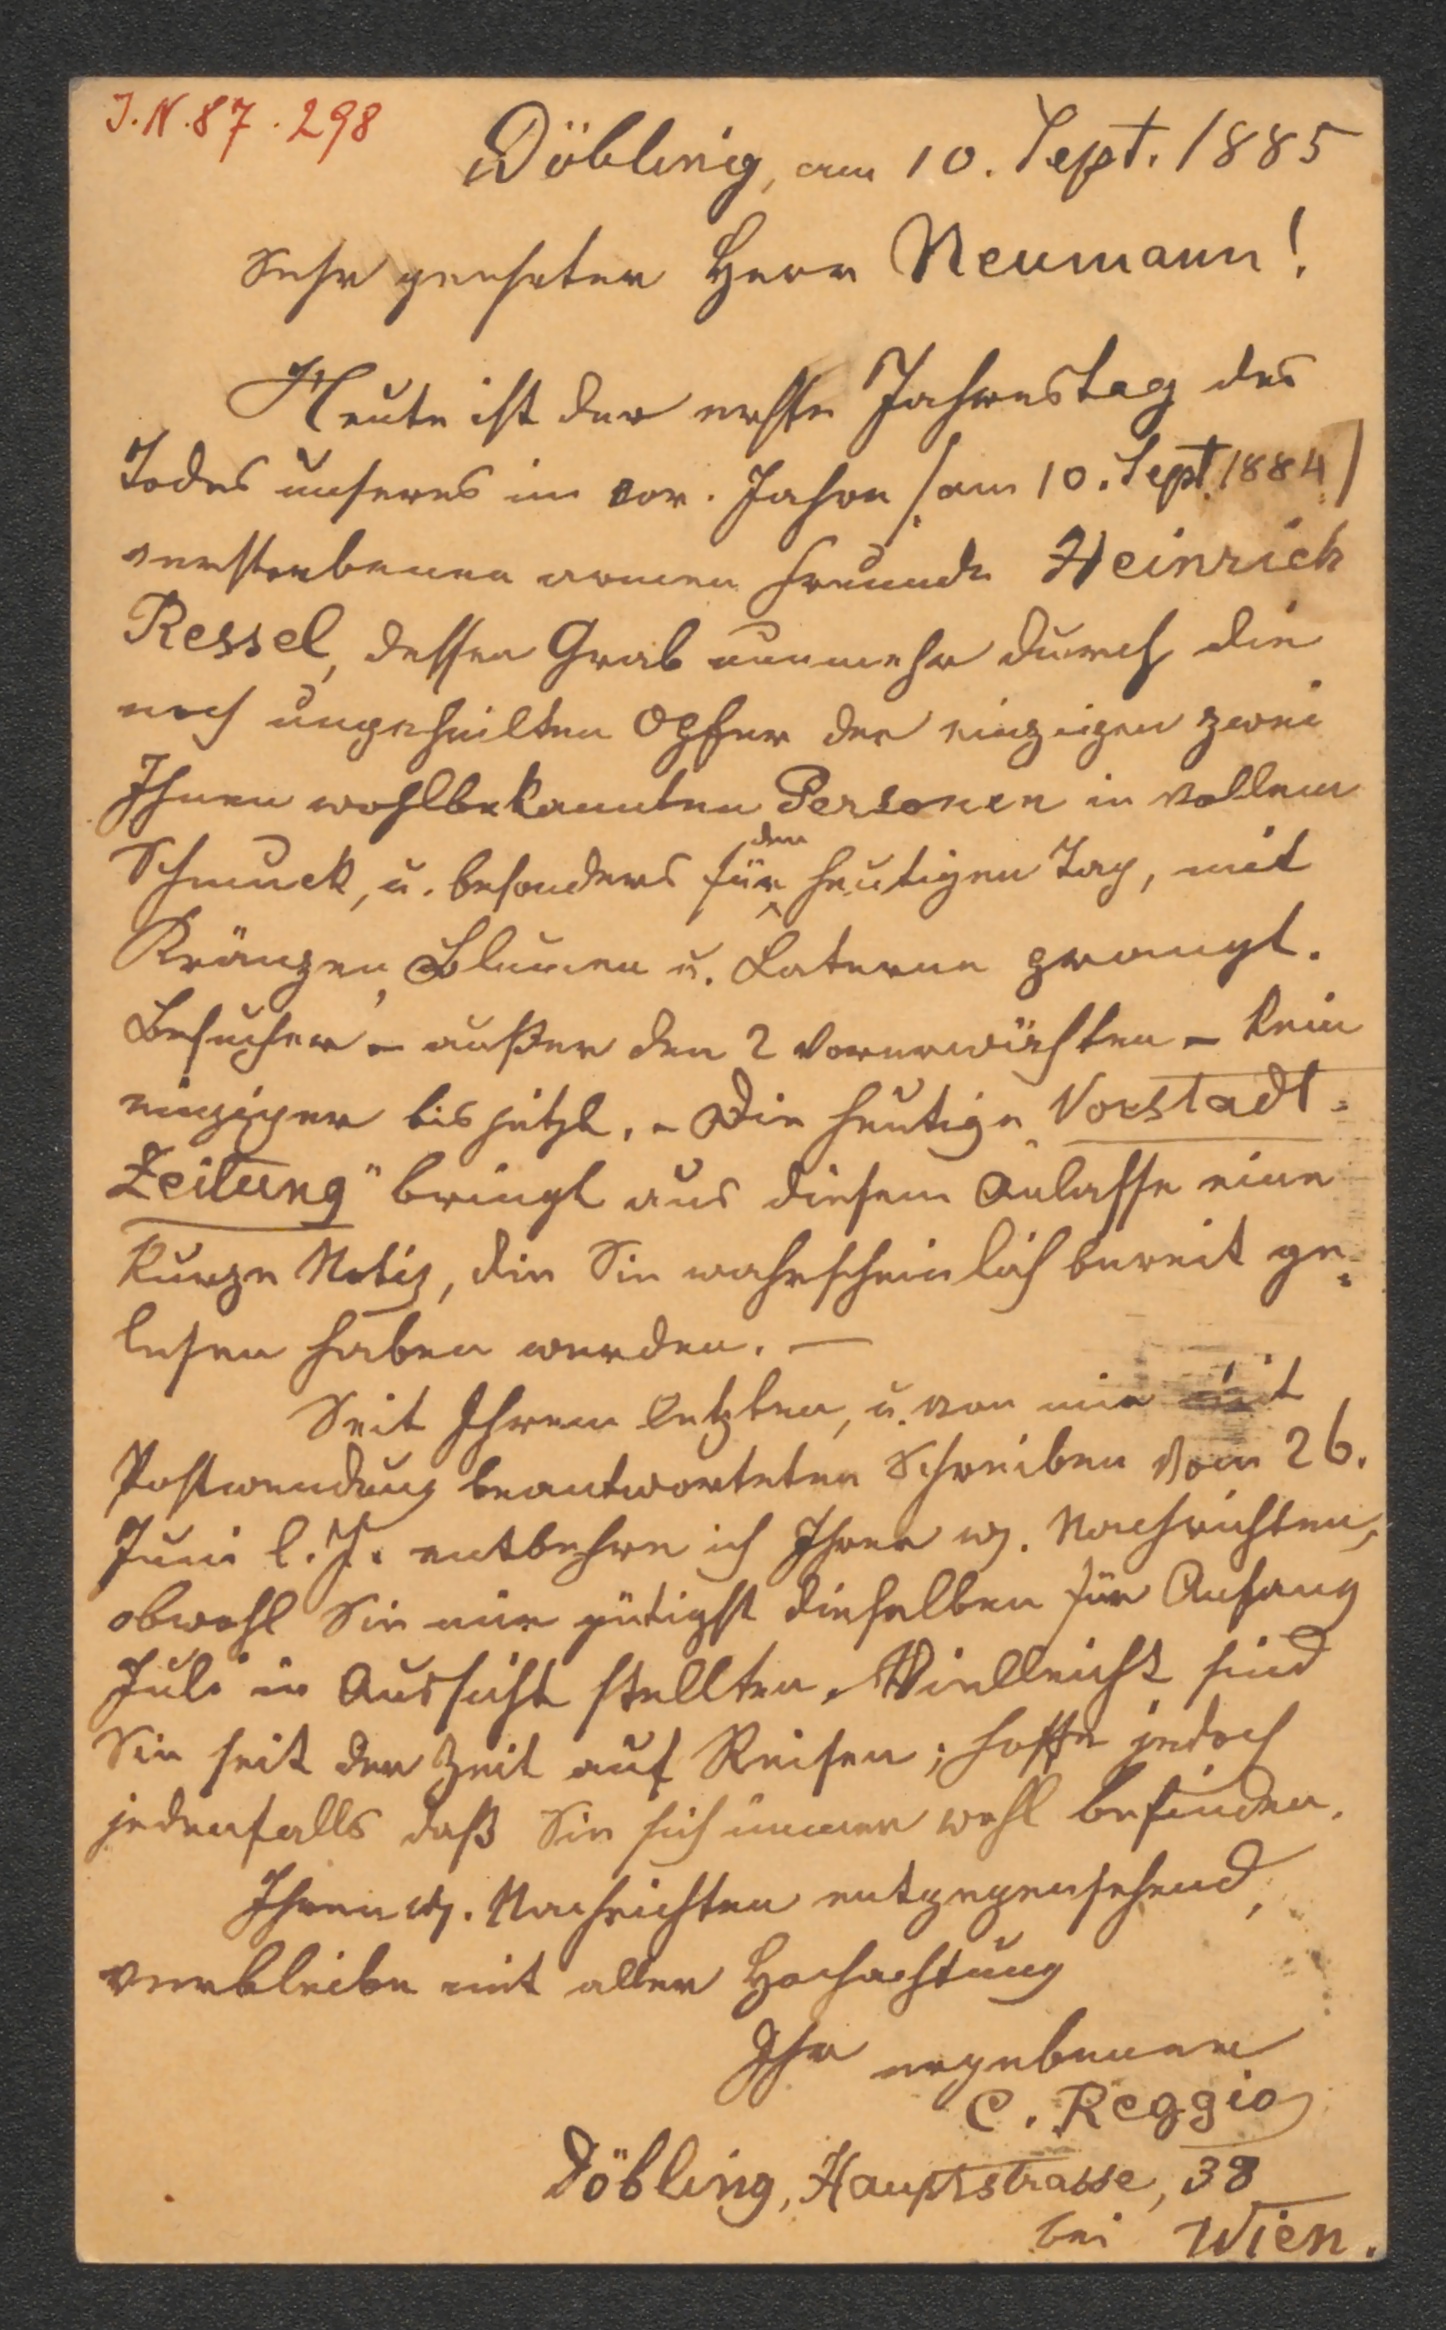 I.N. 87.298
Döbling, am 10. Sept. 1885
Sehr geehrter Herr Neumann!
Heute ist der erste Jahrestag des
Todes unseres im vor. Jahre /am 10. Sept. 1884/
verstorbenen armen Freunde Heinrich
Ressel, dessen Grab nunmehr durch die
noch ungeheilten Opfer der einzigen zwei
Ihnen wohlbekannten Personen in vollem
Schmuck, u. besonders für den heutigen Tag, mit
Kränzen, Blumen u. Laterne prangt.
Besucher – außer den 2 vorerwähten – kein
einziger bis jetzt. – Die heutige „Vorstadt-
Zeitung" bringt aus diesem Anlasse eine
kurze Notiz, die Sie wahrscheinlich bereit ge-
lesen haben werden. —
Seit Ihrem letzten, u. von mir mit
Postwendung beantworteten Schreiben vom 26.
Juni l. J. entbehre ich Ihrer w. Nachrichten,
obwohl Sie mir gütigst dieselben für Anfang
Juli in Aussicht stellten. Vielleicht sind
Sie seit der Zeit auf Reisen; hoffe jedoch
jedenfalls daß Sie sich immer wohl befinden.
Ihren w. Nachrichten entgegensehend,
verbleibe mit aller Hochachtung
Ihr ergebener
C. Reggio
Döbling, Hauptstrasse, 38
bei Wien.